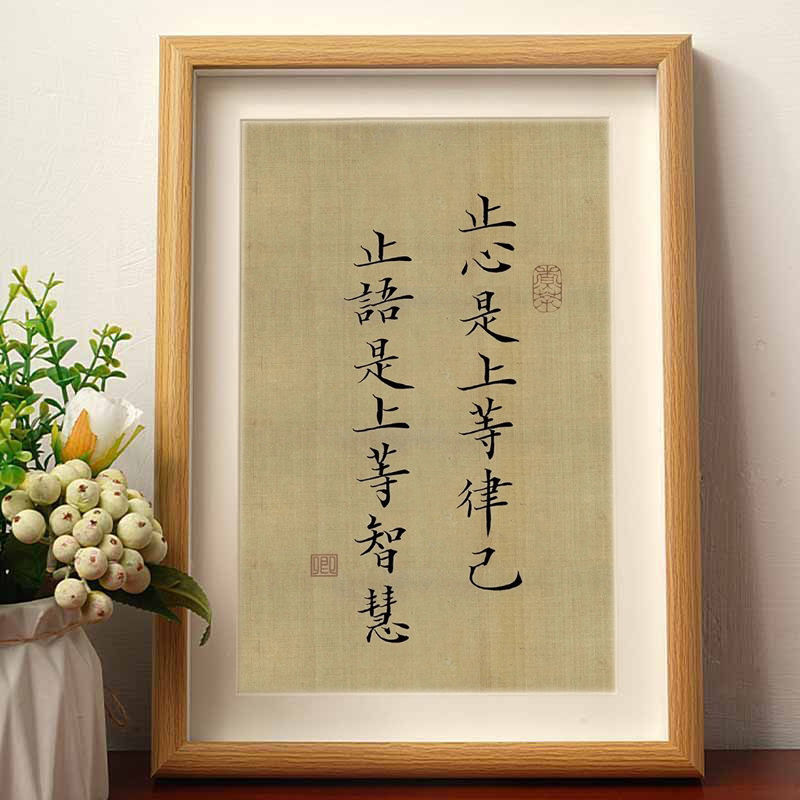 止心是上等律己
止語是上等智慧
卿